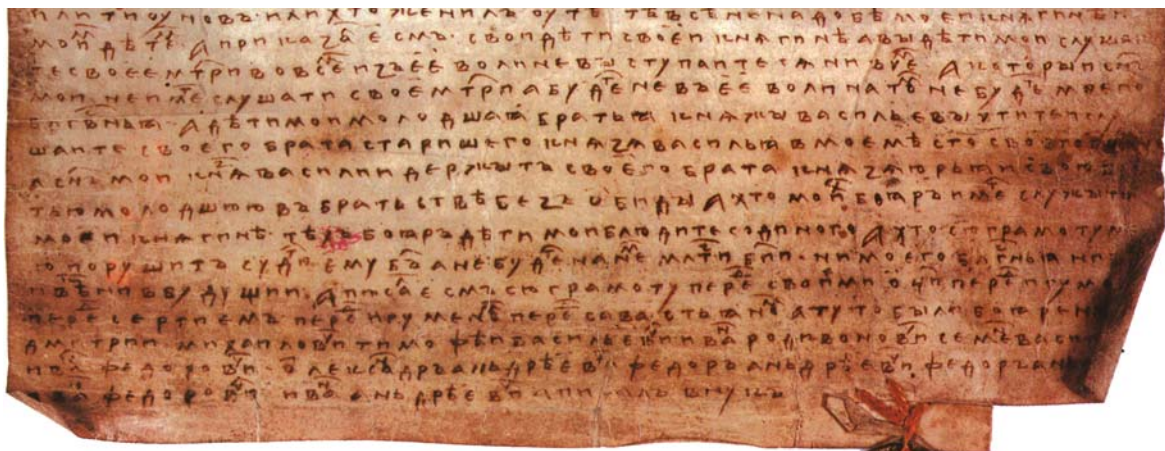 тѣ всѣ не надобѣ моеи кнѧгинѣ и
моим дѣте. А приказа есмь свои дѣти своеи кнѧгинѣ а вы дѣти мои слуша
те своее мтри во все из ъее воли не выступаитесѧ ни въ че. А которыи сн
мои не име слушати своее мтри а буде не въ ее воли на то не буде моего
блгвньꙗ. А дѣти мои молодшаꙗ братьꙗ кнѧжы васильевы чтите и слу
шаите своего брата старишего кнѧзѧ васильꙗ в мое мѣсто своего
а снъ мои кнѧ василии держытъ своего брата кнѧзѧ юрьꙗ и свою б
тью молодшюю въ братьствѣ безъ обиды А хто мои боꙗръ име служыти
моеи кнѧгинѣ тѣхъ боꙗръ дѣти мои блюдите содиного А хто сю грамоту м
ю порушитъ суди ему бъ а не буде на не млти бии ни моего блгвньꙗ ни
вѣ ни в будущии. А писа есмь сю грамоту пере своими оци пере игуме
пере сергиемъ пере игумено пере савастьꙗно А туто были боꙗре на
дмитрии михаилови тимофѣи васильеви ива родивонови семе васи
ива федорови олексадръ аньдрѣеви федоръ аньдрѣеви федоръ ан
ива федорови ива аньдрѣеви а писалъ внукъ